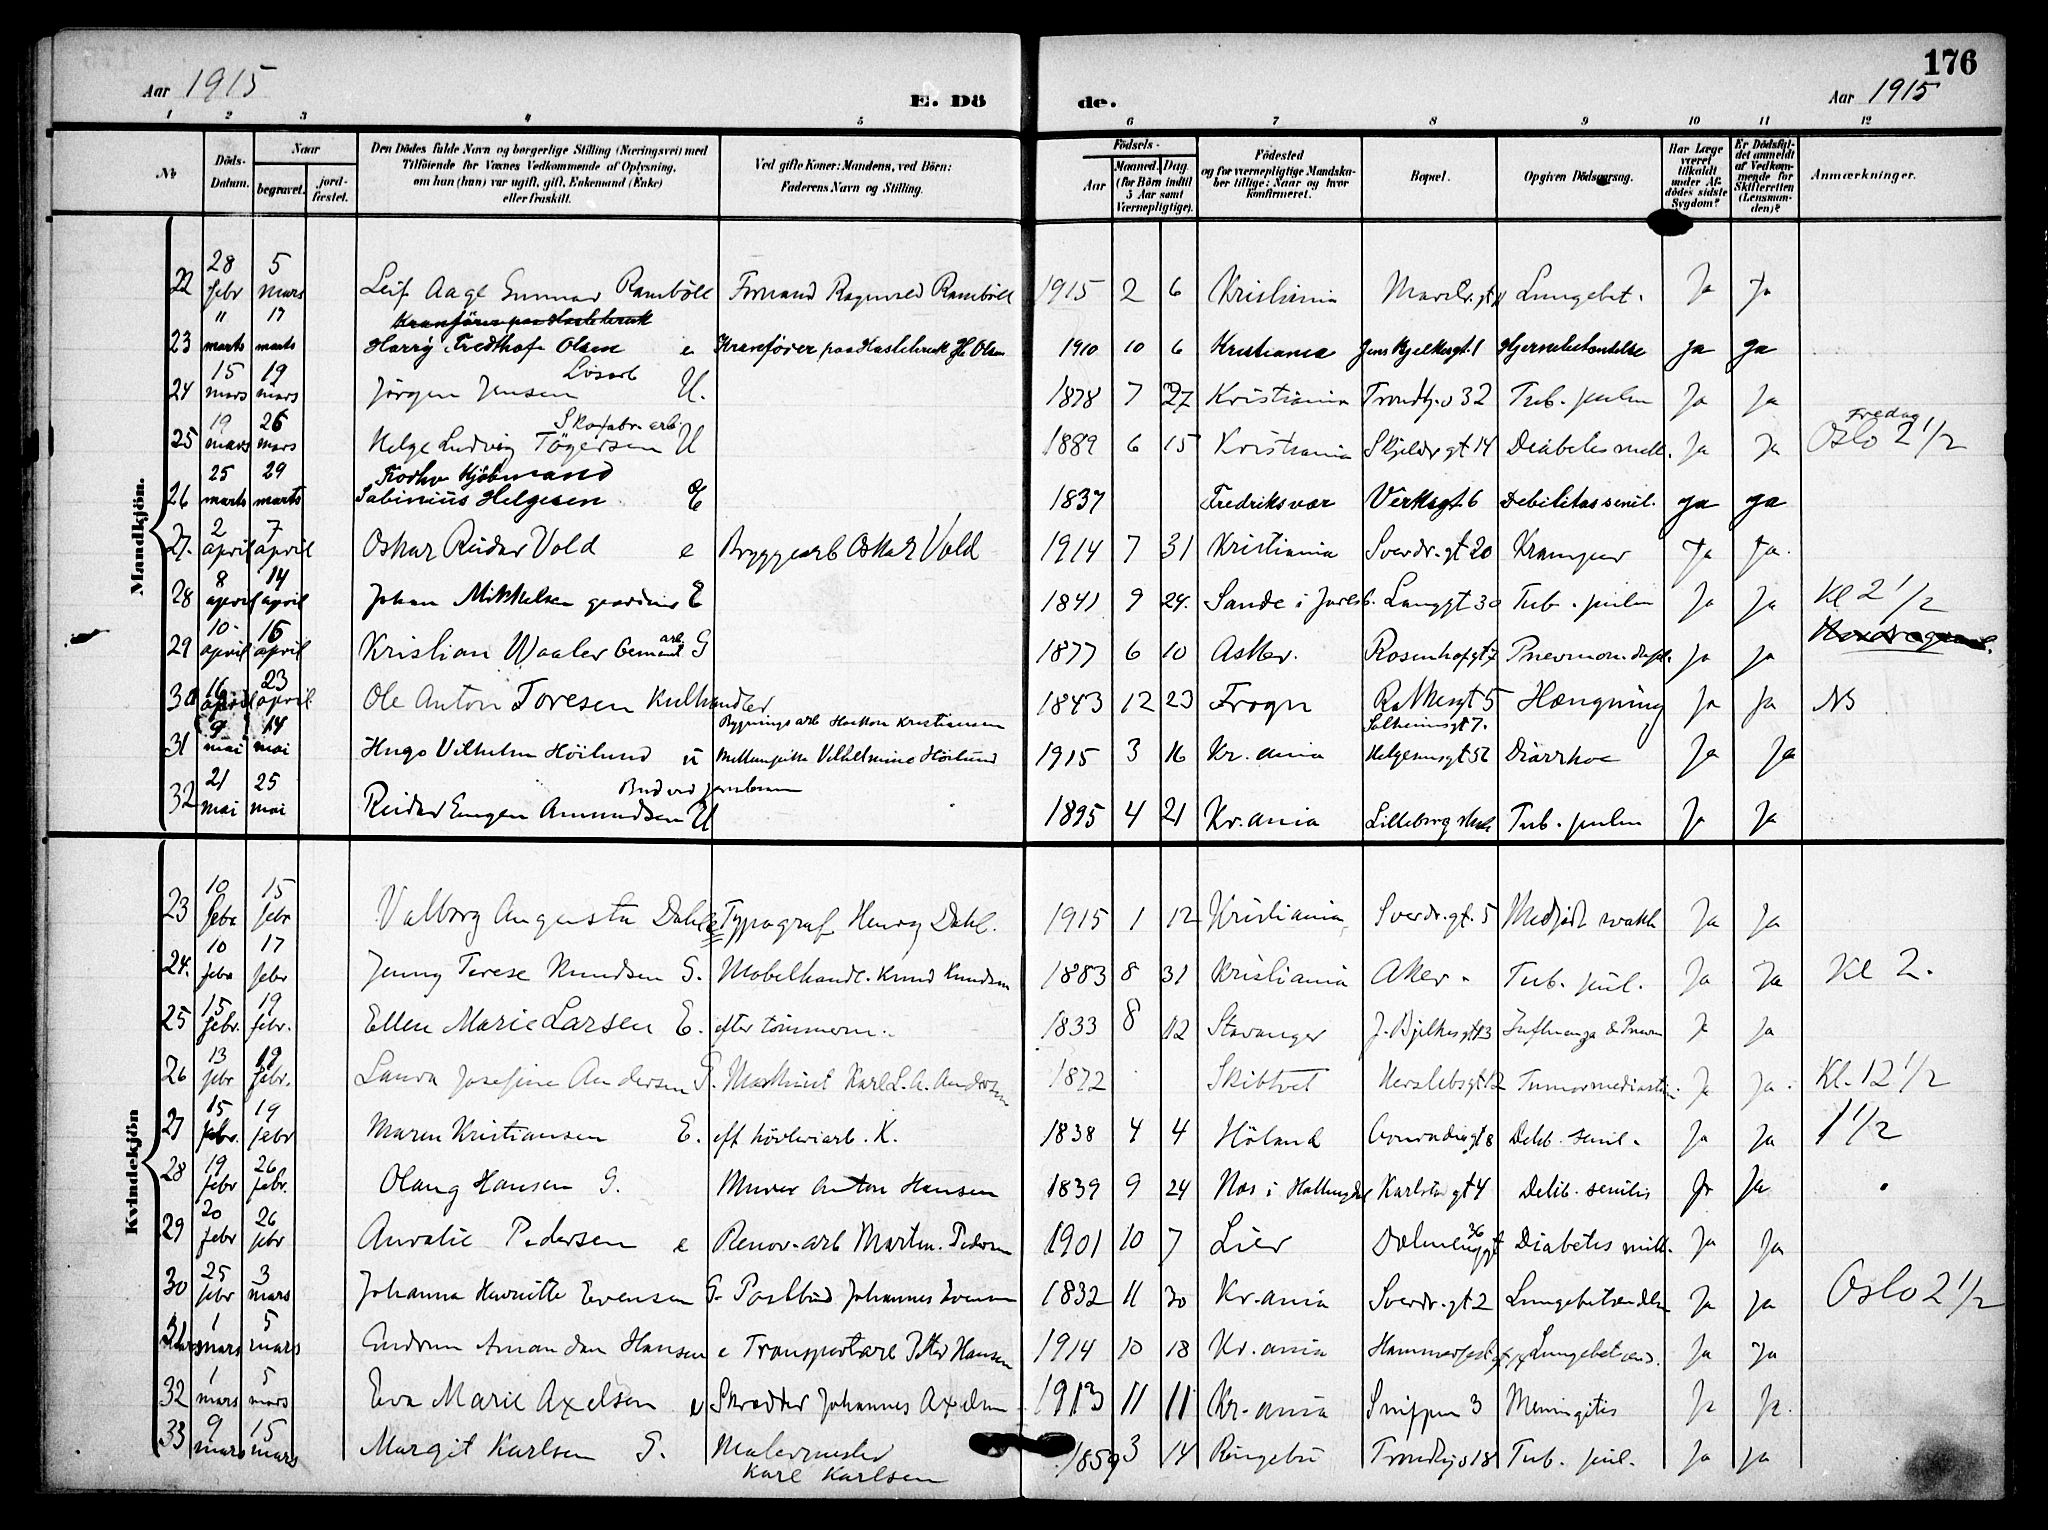 176
Aar 1915 E. Dö de. Aar 1915
1 2 3 4 5 6 7 8 9 10 11 12
№ Döds-Datum. Naar begravet. jordfæstet. Den Dödes fulde Navn og borgerlige Stilling (Næringsvei) med Tilföiende for Voxnes Vedkommende af Oplysning, om han (hun) var ugift, gift, Enkemand (Enke) eller fraskilt. Ved gifte Koner: Mandens, ved Börn: Faderens Navn og Stilling. Födsels- Aar Maaned. Dag. (for Börn indtil 5 Aar samt Værnepligtige). Födested og for værnepligtige Mandskaber tillige: Naar og hvor konfirmeret. Bopæl. Opgiven Dödsaarsag. Har Læge været tilkaldt under Afdödes sidste Sygdom? Er Dödsfaldet anmeldt af Vedkommende for Skifteretten (Lensmanden)? Anmærkninger.
Mandkjön.
22 28 febr 5 mars Leif Aage Gunnar Ramböll Ragnvald Ramböll 1915 2 6 Kristiania Lungebet. Ja Ja
23 11 marts 17 marts Harry Fredthof Olsen e Kranförer paa Haslebruk Olsen 1910 10 6 Kristiania Jens Bjelkesgt. 1 Hjernebetændelse Ja Ja
24 15 mars 19 mars Jörgen Jensen Lösarb U. 1878 7 27 Kristiania Trondhj.v 32 Tub. pulm Ja Ja
25 19 mars 26 mars Helge Ludvig Tögersen Skofabr. arb. U 1889 6 15 Kristiania Skjeldr.gt 14 Diabetes mell. Ja Ja Fredag Oslo 2 1/2
26 25 marts 29 marts Sabinius Helgesen E 1837 Fredriksvær Verksgt 6 Debilitas senil. Ja Ja
27. 2 april 7 april Oskar Reidar Vold e Bryggearb Oskar Vold 1914 7 31 Kristiania Sverdr.gt 20 Kramper Ja Ja.
28 8 april 14 april Johan Mikkelsen E 1841 9 24. Sande i Jarlsb. Langgt 30 Tub. pulm Ja Ja Kl 2 1/2
29 10 april 16 april Kristian Waaler arb. G 1877 6 10 Asker. Rosenhofgt 7 Pneumon. dupl. Ja Ja
30 16 april 23 april Ole Anton Toresen Kulhandler 1843 12 23 Frogn Rathkesgt 5 Hængning Ja Ja NB
31 9 mai 14 mai Hugo Vilhelm Höilund u Bygningsarb Haakon Kristiansen Vilhelmine Höilund 1915 3 16 Kr.ania Solheimsgt 7. Helgesensgt 56 Diarrhoe Ja Ja
32 21 mai 25 mai Reidar Eugen Amundsen Bud ved U 1895 4 21 Kr.ania Lilleborg Tub. pulm Ja Ja
Kvindekjön
23 10 febr 15 febr Valborg Augusta Dahl e Typograf Henry Dahl. 1915 1 12 Kristiania Sverdr.gt. 5 Medfödt svakh Ja Ja
24. 10 febr 17 febr Jenny Terese Knudsen G. Möbelhandl. Knud Knudsen 1883 8 31 Kristiania Aker. Tub. pul. Ja Ja Kl 2.
25 15 febr. 19 febr. Ellen Marie Larsen E. efter tömmerm. 1833 8 12 Stavanger J. Bjelkesgt 13 Influenza & Pneum Ja Ja
26 13 febr 19 febr. Laura Josefine Andersen G. Maskinist Karl L. A. Andersen 1872 Skibtvet Herslebsgt 12 Tumor mediastini Ja Ja. Kl. 12 1/2
27 15 febr. 19 febr Maren Kristiansen E. eft hövleriarb. K. 1838 4 4 Höland Conradisgt 8 Debil. senil. Ja Ja 1 1/2
28 19 febr 26 febr. Olaug Hansen G. Murer Anton Hansen 1839 9 24 Nes i Hallingdal Karlstgt 4 Debil. senilis Ja Ja
29 20 febr 26 febr Auralie Pedersen e Renov. arb Martin Pedersen 1901 10 7 Lier Dælenenggt 36 Diabetes mell. Ja Ja
30 25 febr 3 mars Johanna Henriette Evensen G. Postbud Johannes Evensen 1832 11 30 Kr.ania Sverdr.gt 2 Lungebetændelse Ja Ja Oslo 2 1/2
31 1 mars 5 mars Gudrun Amanda Hansen e Transportarb Peter Hansen 1914 10 18 Kr.ania Hammerfestgt Lungebetænd. Ja Ja
32 1 mars 5 mars Eva Marie Axelsen e Skrædder Johannes Axelsen 1913 11 11 Kr.ania Snippen 3 Meningitis Ja Ja.
33 9 mars 15 mars Margit Karlsen G. Malermester Karl Karlsen 1859 3 14 Ringebu Trondhj.v 18 Tub. pul. Ja Ja